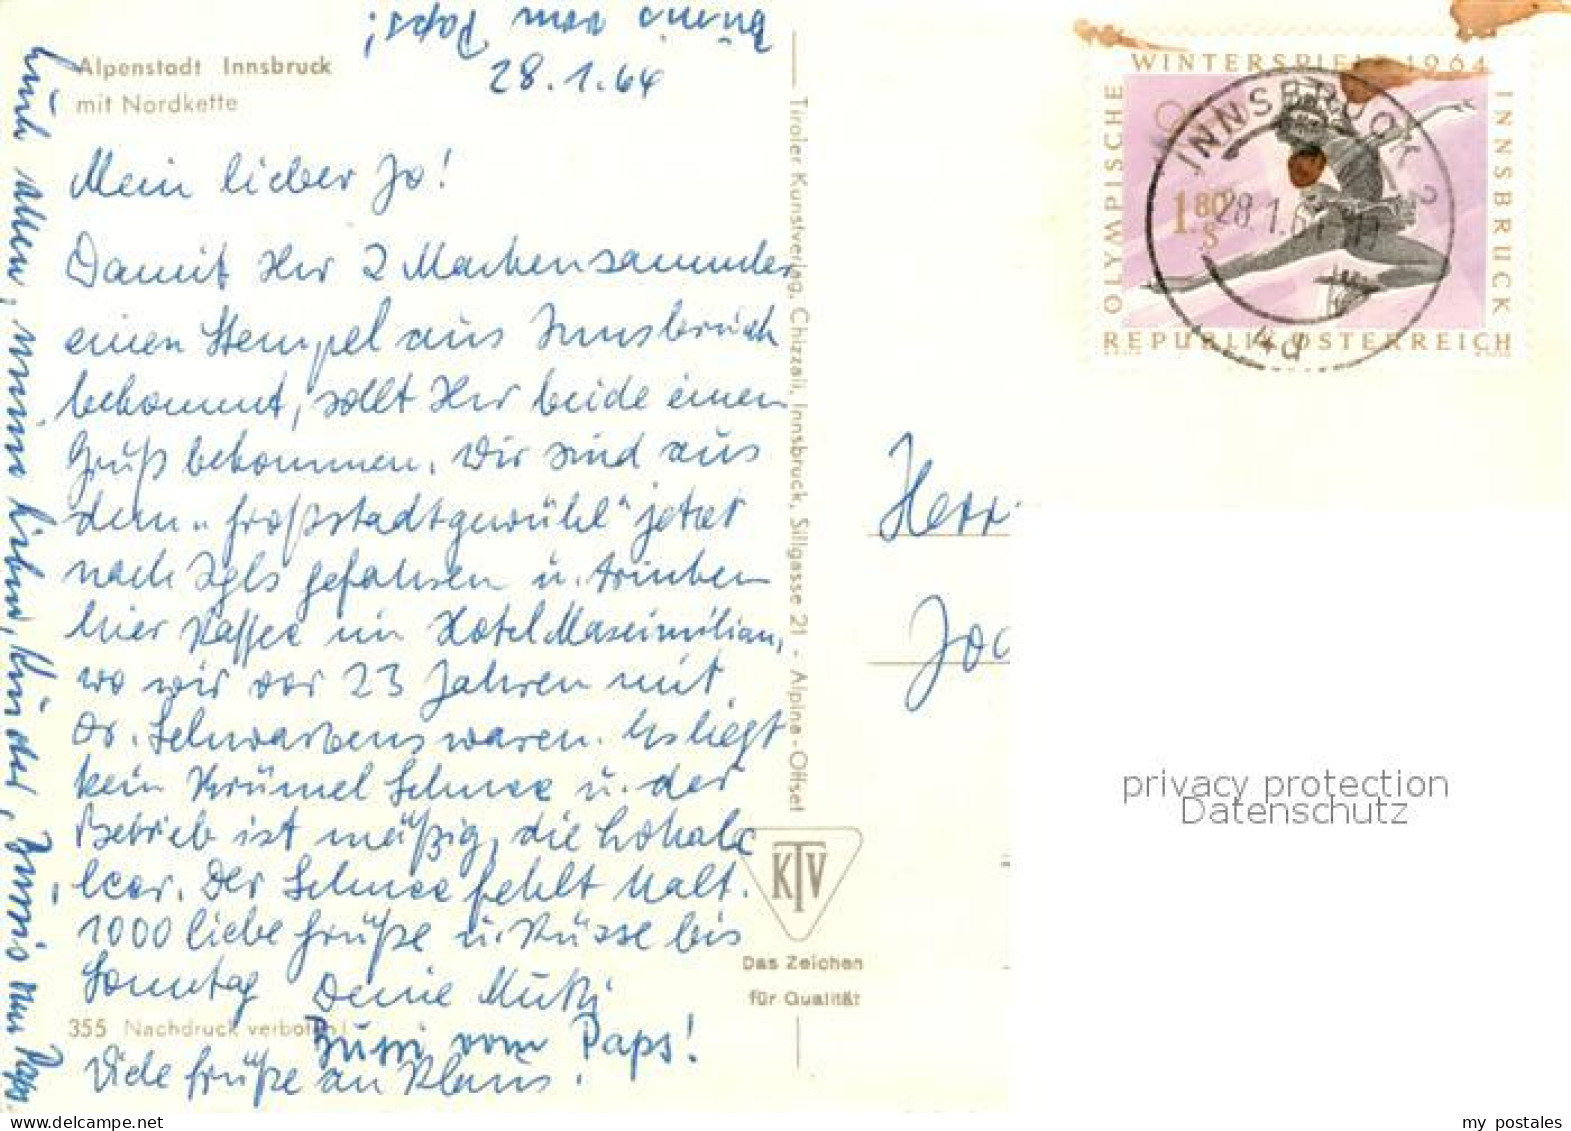 Alpenstadt Innsbruck
mit Nordkette
Bussi vom Paps!
28.1.64
Mein lieber Jo!
Damit Ihr 2 Markensammler
einen Stempel aus Innsbruck
bekommt, sollt Ihr beide einen
Gruß bekommen. Wir sind aus
dem „Großstadtgewühl" jetzt
nach Igls gefahren u. trinken
hier Kaffee im Hotel Maximilian,
wo wir vor 23 Jahren mit
Dr. Schwarkens waren. Es liegt
kein Krümel Schnee u. der
Betrieb ist mäßig, die Lokale
leer. Der Schnee fehlt halt.
1000 liebe Grüße u. Küsse bis
Sonntag Deine Mutti
Bussi vom Paps!
Viele Grüße an Klaus.
355 Nachdruck verboten!
Euch allen, meine lieben Kinder, Bussis von Paps.
Tiroler Kunstverlag, Chizzali, Innsbruck, Sillgasse 21 - Alpina-Offset
KTV
Das Zeichen
für Qualität
WINTERSPIELE 1964
OLYMPISCHE
INNSBRUCK
1.80
S
REPUBLIK ÖSTERREICH
INNSBRUCK 2
28.1.64
4d
Herr
Joc
privacy protection
Datenschutz
www.delcampe.net
my_postales